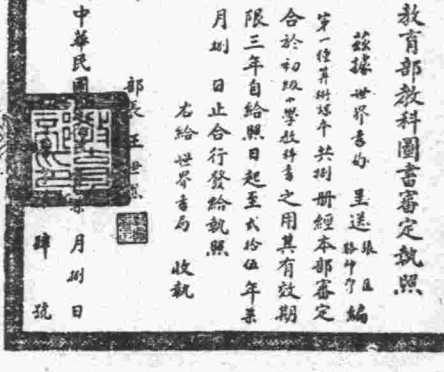 教育部教科圖書審定執照
茲據世界書局呈送張匡 駱師曾編
第一種算術課本共捌册經本部審定
合於初級小學教科書之用其有效期
限三年自給照日起至弍拾伍年柒
月捌日止合行發給執照
右給世界書局收執
部長王世杰
中華民國 月捌日
肆號